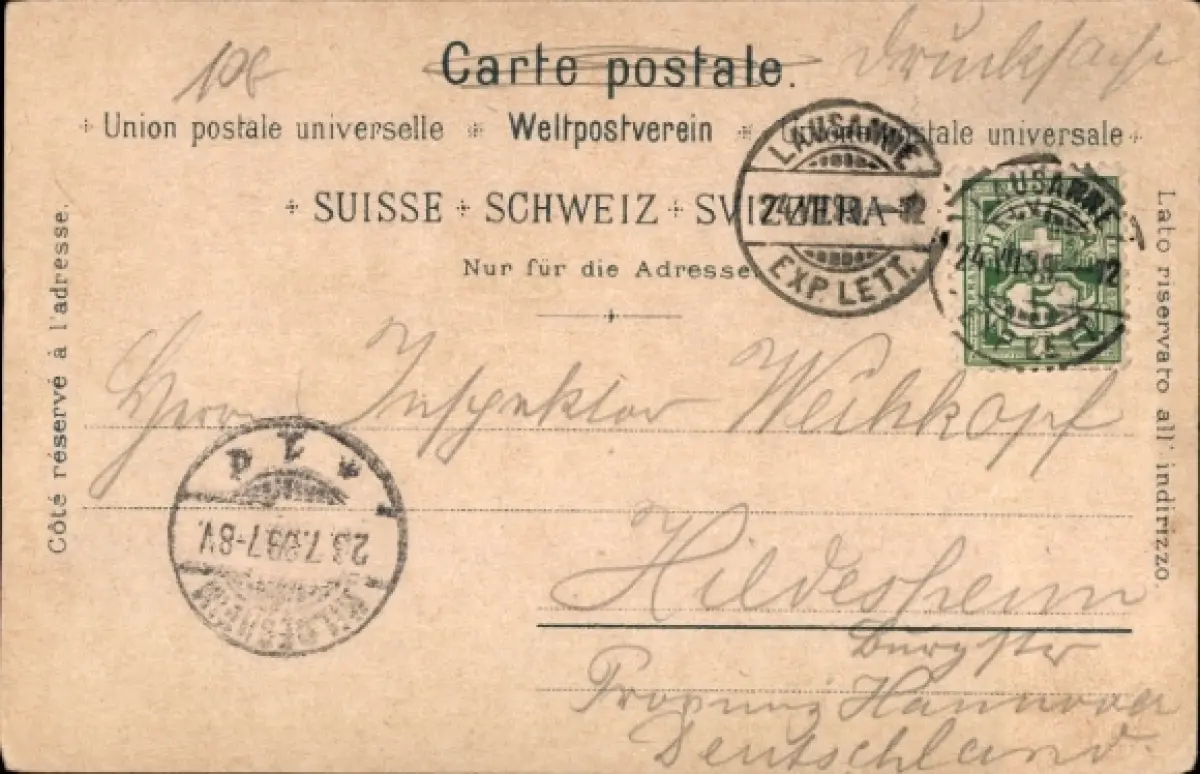 108
Carte postale.
Drucksache
Union postale universelle * Weltpostverein * Unione postale universale
LAUSANNE
24.VII.99.-12
EXP. LETT.
LAUSANNE
24.VII.99.-12
EXP. LETT.
HELVETIA
5
SUISSE + SCHWEIZ + SVIZZERA
Nur für die Adresse.
Côté réservé à l'adresse.
Lato riservato all' indirizzo.
Herrn Inspektor Weihkopf
HILDESHEIM
7-8V.
* 1 d
Hildesheim
Burgstr
Provinz Hannover
Deutschland.